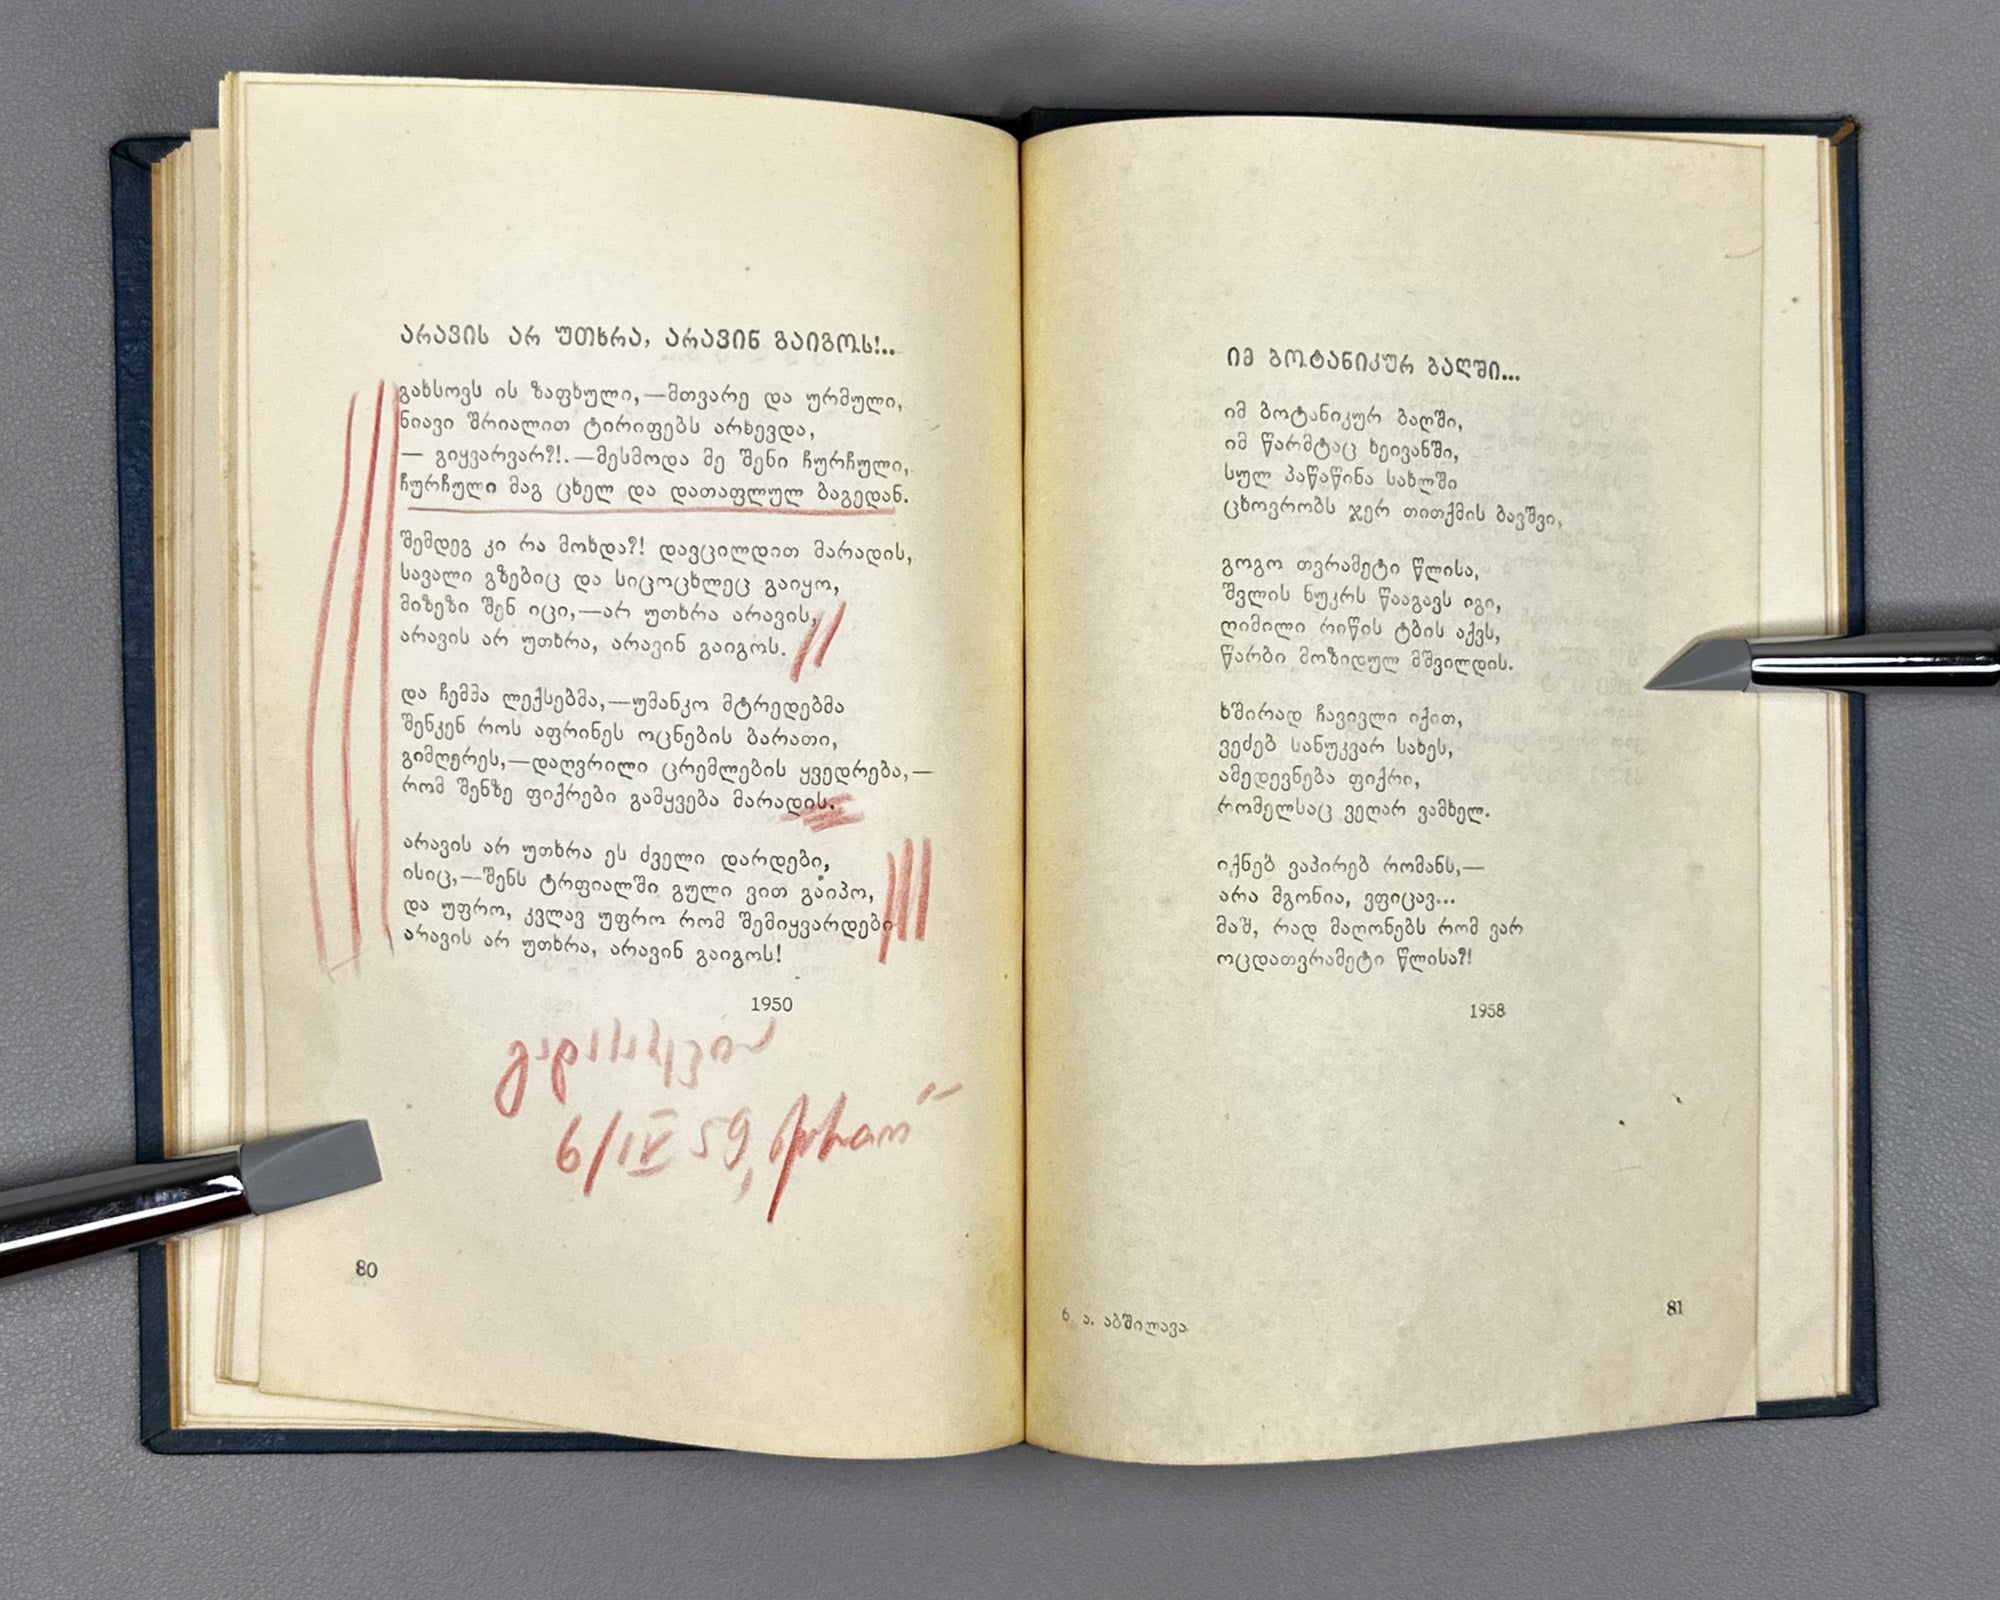 არავის არ უთხრა, არავინ გაიგოს!..
გახსოვს ის ზაფხული,—მთვარე და ურმული,
ნიავი შრიალით ტირიფებს არხევდა,
— გიყვარვარ?!.—მესმოდა მე შენი ჩურჩული,
ჩურჩული მაგ ცხელ და დათაფლულ ბაგედან.
შემდეგ კი რა მოხდა?! დავცილდით მარადის,
სავალი გზებიც და სიცოცხლეც გაიყო,
მიზეზი შენ იცი,—არ უთხრა არავის,
არავის არ უთხრა, არავინ გაიგოს.
და ჩემმა ლექსებმა,—უმანკო მტრედებმა
შენკენ როს აფრინეს ოცნების ბარათი,
გიმღერეს,—დაღვრილი ცრემლების ყვედრება,—
რომ შენზე ფიქრები გამყვება მარადის.
არავის არ უთხრა ეს ძველი დარდები,
ისიც,—შენს ტრფიალში გული ვით გაიპო,
და უფრო, კვლავ უფრო რომ შემიყვარდები
არავის არ უთხრა, არავინ გაიგოს!
1950
6/IV 59,
80
იმ ბოტანიკურ ბაღში...
იმ ბოტანიკურ ბაღში,
იმ წარმტაც ხეივანში,
სულ პაწაწინა სახლში
ცხოვრობს ჯერ თითქმის ბავშვი,
გოგო თვრამეტი წლისა,
შვლის ნუკრს წააგავს იგი,
ღიმილი რიწის ტბის აქვს,
წარბი მოზიდულ მშვილდის.
ხშირად ჩავივლი იქით,
ვეძებ სანუკვარ სახეს,
ამედევნება ფიქრი,
რომელსაც ვეღარ ვამხელ.
იქნებ ვაპირებ რომანს,—
არა მგონია, ვფიცავ...
მაშ, რად მაღონებს რომ ვარ
ოცდათვრამეტი წლისა?!
1958
6 ა. აბშილავა
81